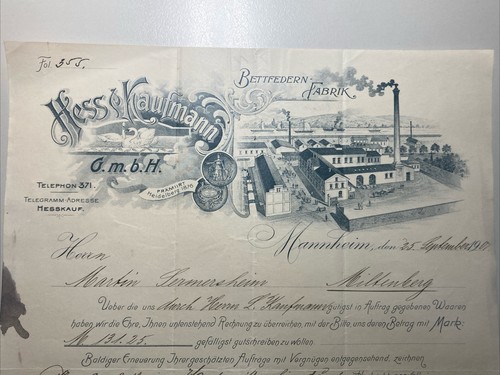 Fol. 355.
Hess & Kaufmann
G.m.b.H.
Bettfedern-
Fabrik.
Telephon 371.
Telegramm-Adresse
Hesskauf.
Prämiirt
Heidelberg 1876
Mannheim, den 25. September
Herrn
Martin Sermersheim Miltenberg
Ueber die uns durch Herrn L. Kaufmann gütigst in Auftrag gegebenen Waaren
haben wir die Ehre, Ihnen untenstehend Rechnung zu überreichen, mit der Bitte, uns deren Betrag mit Mark:
M 131.25 gefälligst gutschreiben zu wollen
Baldiger Erneuerung Ihrer geschätzten Aufträge mit Vergnügen entgegensehend, zeichnen